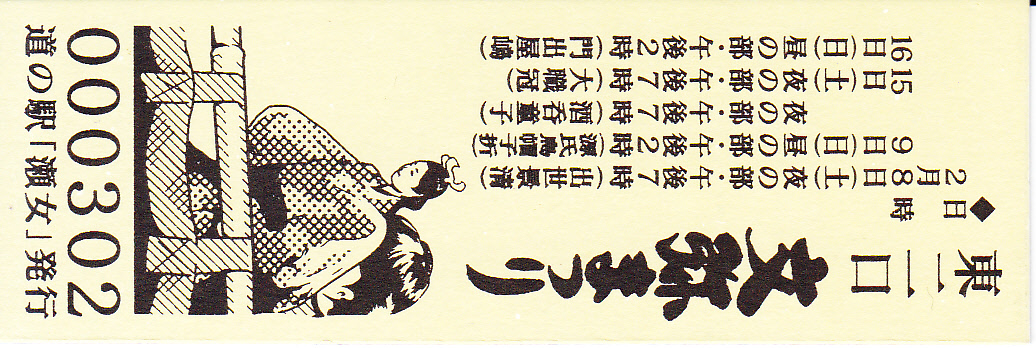 東二口
文弥まつり
◆日時
2月8日(土)夜の部・午後7時(出世景清)
9日(日)昼の部・午後2時(源氏烏帽子折)
夜の部・午後7時(酒呑童子)
15日(土)夜の部・午後7時(大職冠)
16日(日)昼の部・午後2時(門出屋嶋)
000302
道の駅「瀬女」発行